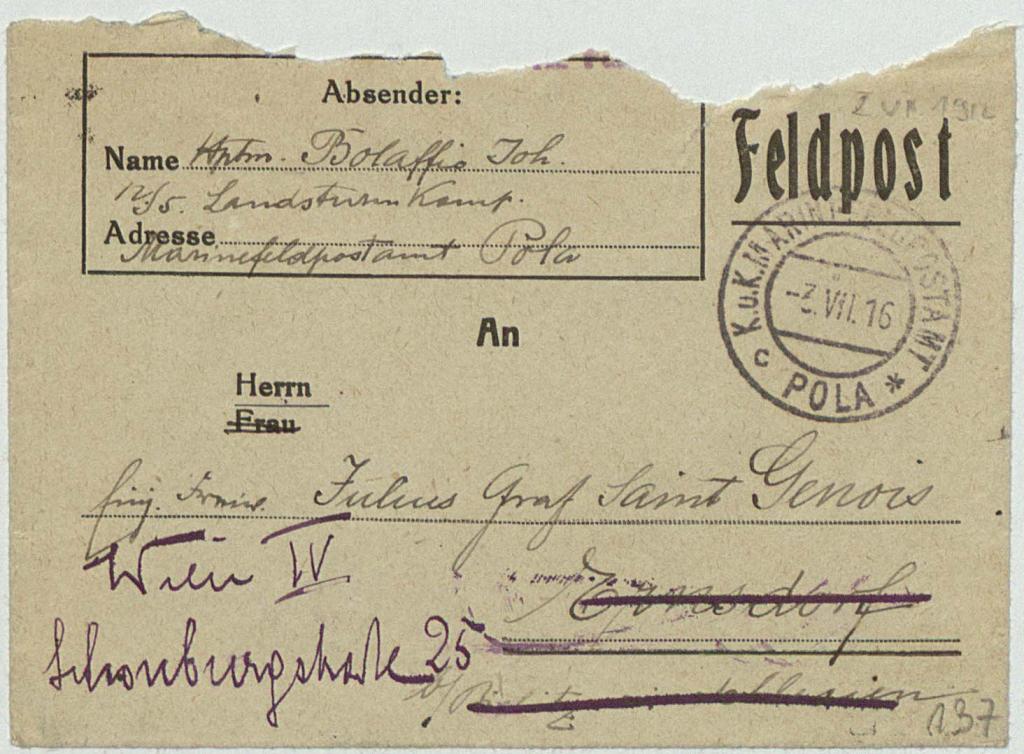 Absender:
Name Hptm. Bolaffio Joh.
12/5. Landsturm Komp.
Adresse
Marinefeldpostamt Pola
Feldpost
K.u.K. MARINEFELDPOSTAMT
-3.VII.16
c POLA *
An
Herrn
Frau
Einj. Freiw. Julius Graf Saint Genois
Wien IV
Ernsdorf
Schönburgstraße 25
b/ Bielitz Schlesien
137